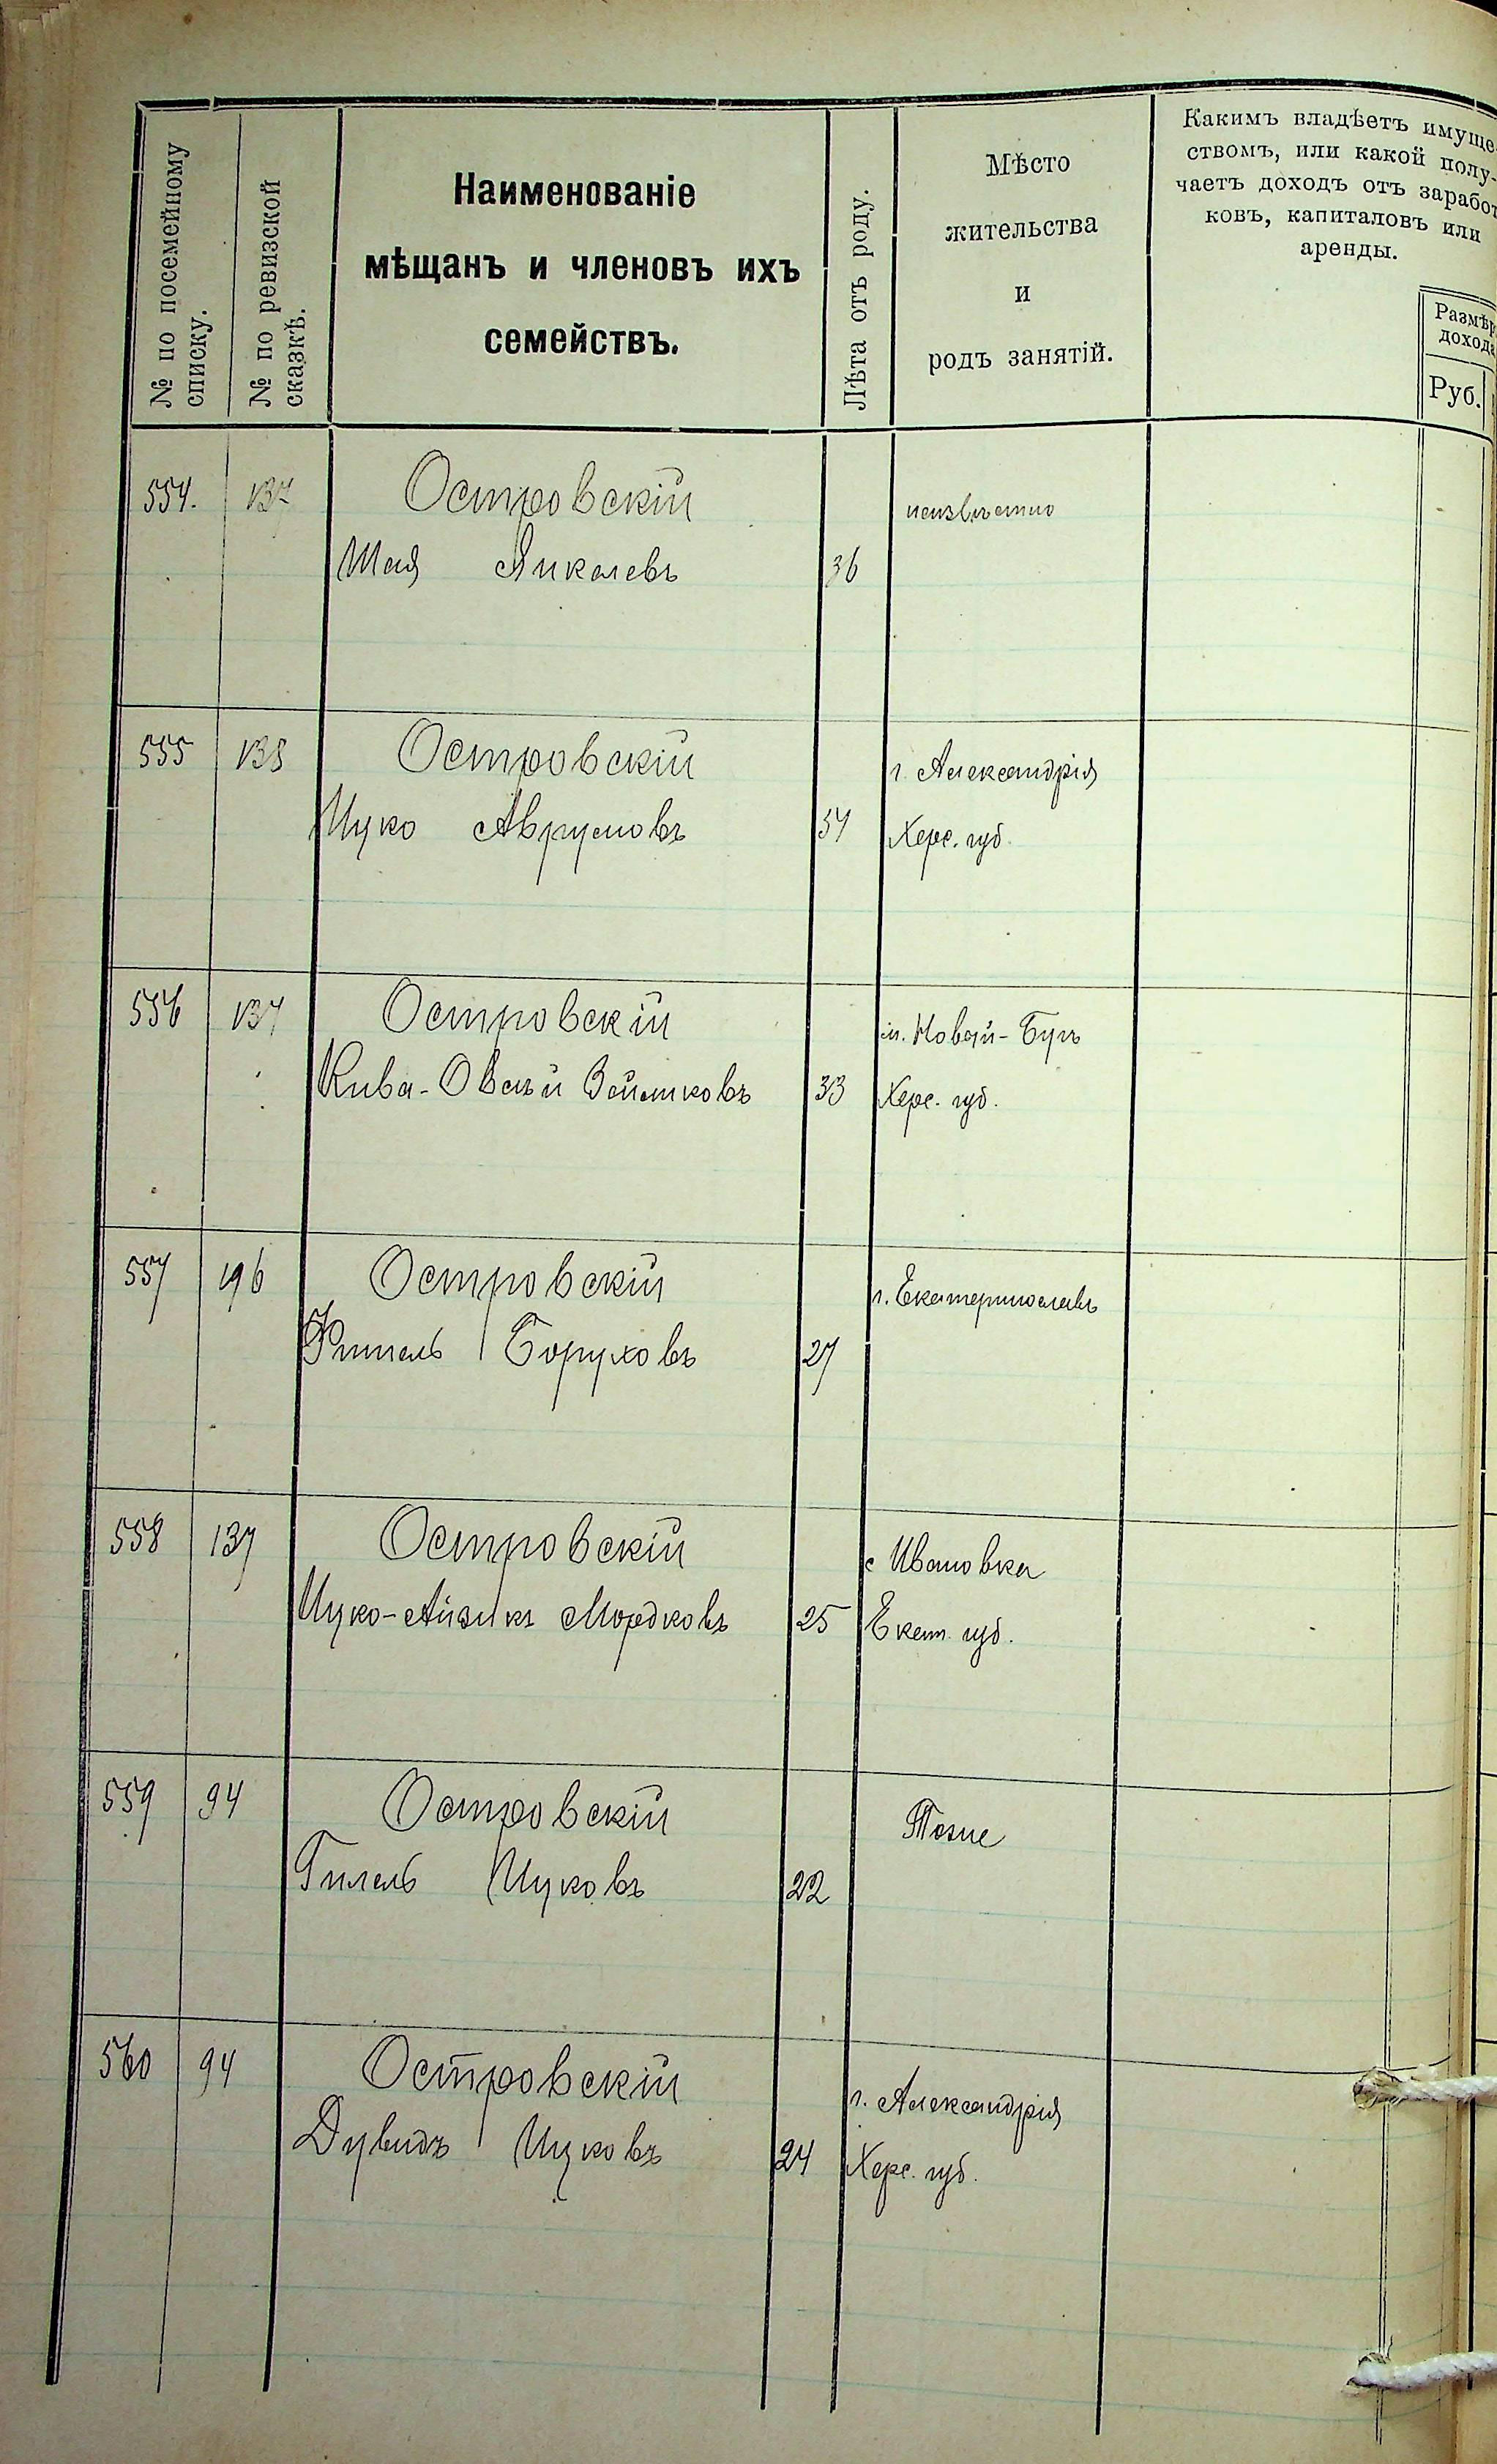 № по посемейному
списку.
№ по ревизской
сказкѣ.
Наименованіе
мѣщанъ и членовъ ихъ
семействъ.
Лѣта отъ роду.
Мѣсто
жительства
и
родъ занятій.
Какимъ владѣетъ имуще-
ствомъ, или какой полу-
чаетъ доходъ отъ заработ
ковъ, капиталовъ или
аренды.
Размѣр
дохода
Руб.
554. 137 Островскій неизвѣстно
Шая Янкелевъ 36
555 138 Островскій г. Александрія
Ицко Аврумовъ 54 Херс. губ.
556 137 Островскій м. Новый-Бугъ
Кива-Овсѣй 33 Херс. губ.
557 196 Островскій г. Екатеринославъ
Боруховъ 27
558 137 Островскій с Ивановка
Ицко-Айзикъ Мордковъ 25 Екат. губ.
559 94 Островскій Тоже
Гилель Ицковъ 22
560 94 Островскій г. Александрія
Дувидъ Ицковъ 24 Херс. губ.